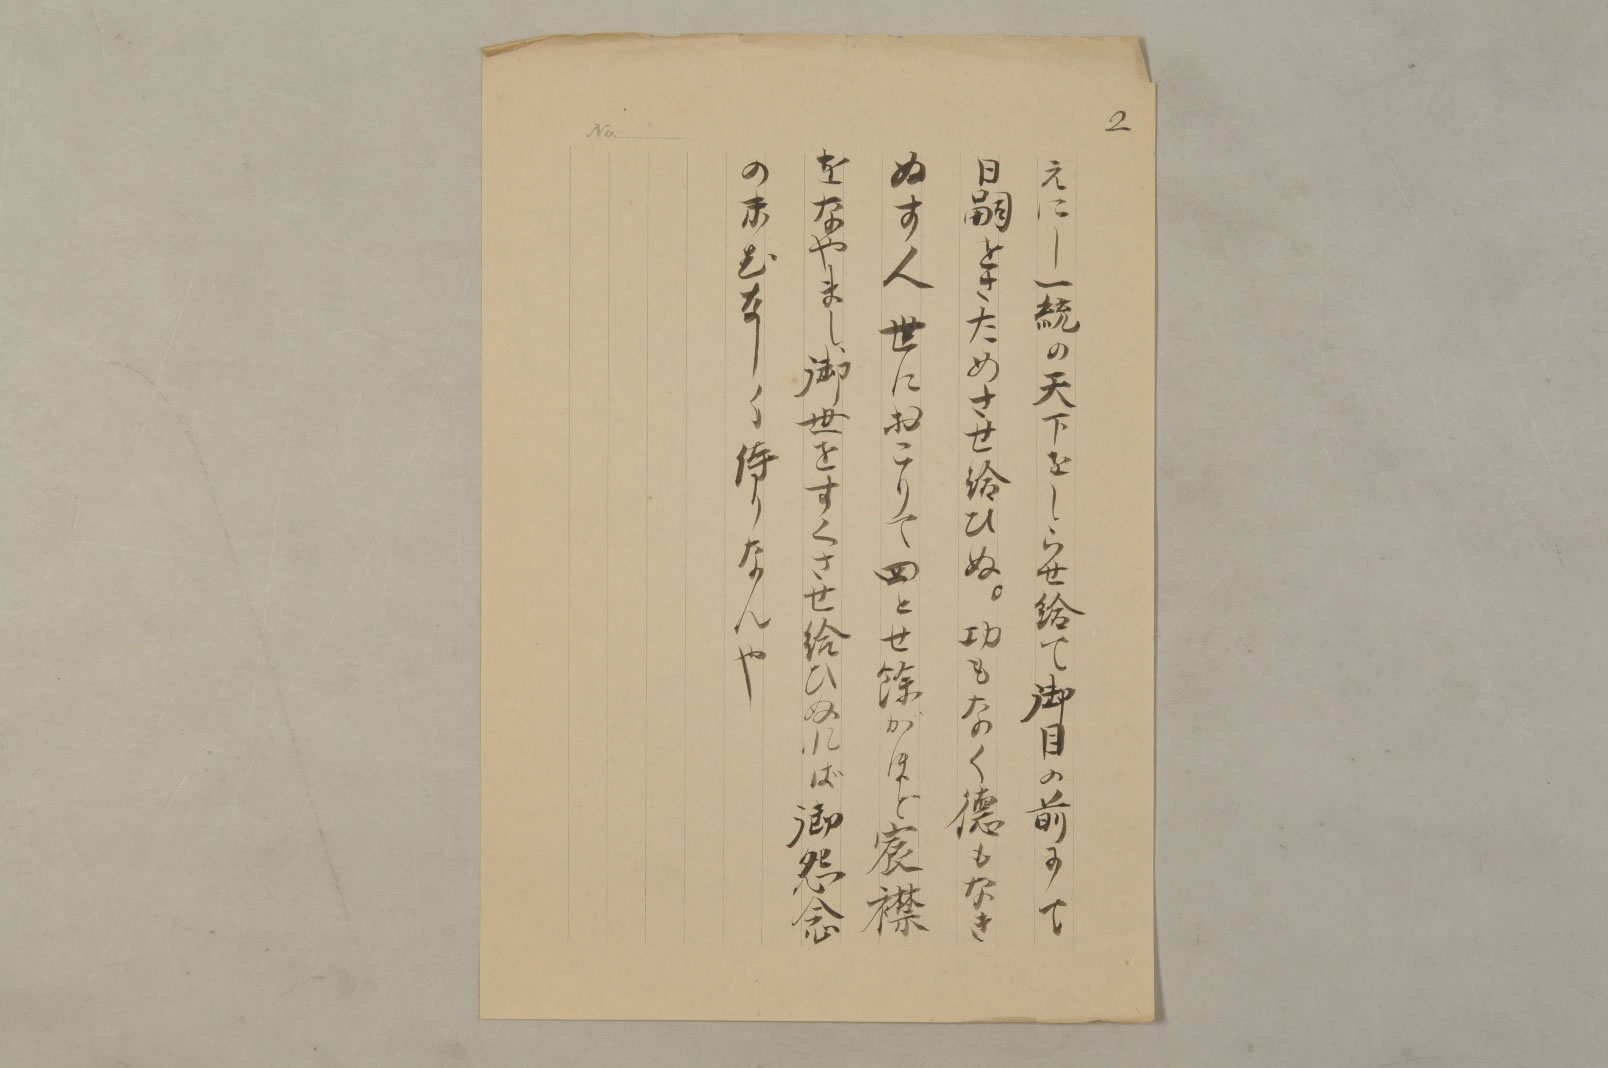 2
No.
えにし一統の天下をしらせ給て御目の前にて
日嗣をさためさせ給ひぬ。功もなく徳もなき
ぬす人世におこりて四とせ餘がほど宸襟
をなやまし、御世をすくさせ給ひぬれば御怨念
の末むなしく侍りなんや